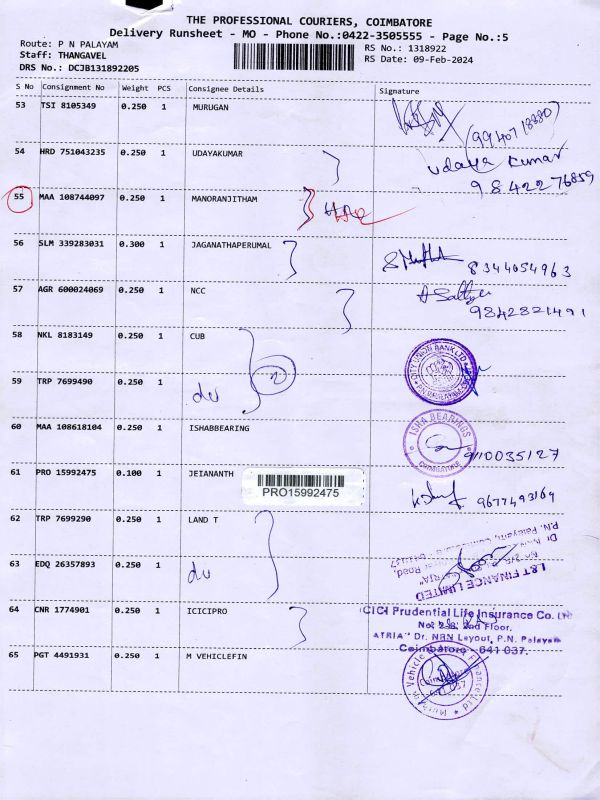 THE PROFESSIONAL COURIERS, COIMBATORE
Delivery Runsheet - MO - Phone No.:0422-3505555 - Page No.:5
Route: P N PALAYAM
RS No.: 1318922
Staff: THANGAVEL
RS Date: 09-Feb-2024
DRS No.: DCJB131892205
S No Consignment No Weight PCS Consignee Details Signature
53 TSI 8105349 0.250 1 MURUGAN
54 HRD 751043235 0.250 1 UDAYAKUMAR
udaya kumar
98422 76859
55 MAA 108744097 0.250 1 MANORANJITHAM
56 SLM 339283031 0.300 1 JAGANATHAPERUMAL
8344054963
57 AGR 600024069 0.250 1 NCC
9842821491
58 NKL 8183149 0.250 1 CUB
CITY UNION BANK LTD
2
59 TRP 7699490 0.250 1
60 MAA 108618104 0.250 1 ISHABBEARING
ISHA BEARINGS
COIMBATORE
61 PRO 15992475 0.100 1 JEIANANTH
PRO15992475
9677493169
62 TRP 7699290 0.250 1 LAND T
63 EDQ 26357893 0.250 1
L&T FINANCE LIMITED
64 CNR 1774901 0.250 1 ICICIPRO
ICICI Prudential Life Insurance Co. Ltd
2nd Floor,
ATRIA" Dr. NRN Layout, P.N. Palayam
Coimbatore - 641 037.
65 PGT 4491931 0.250 1 M VEHICLEFIN